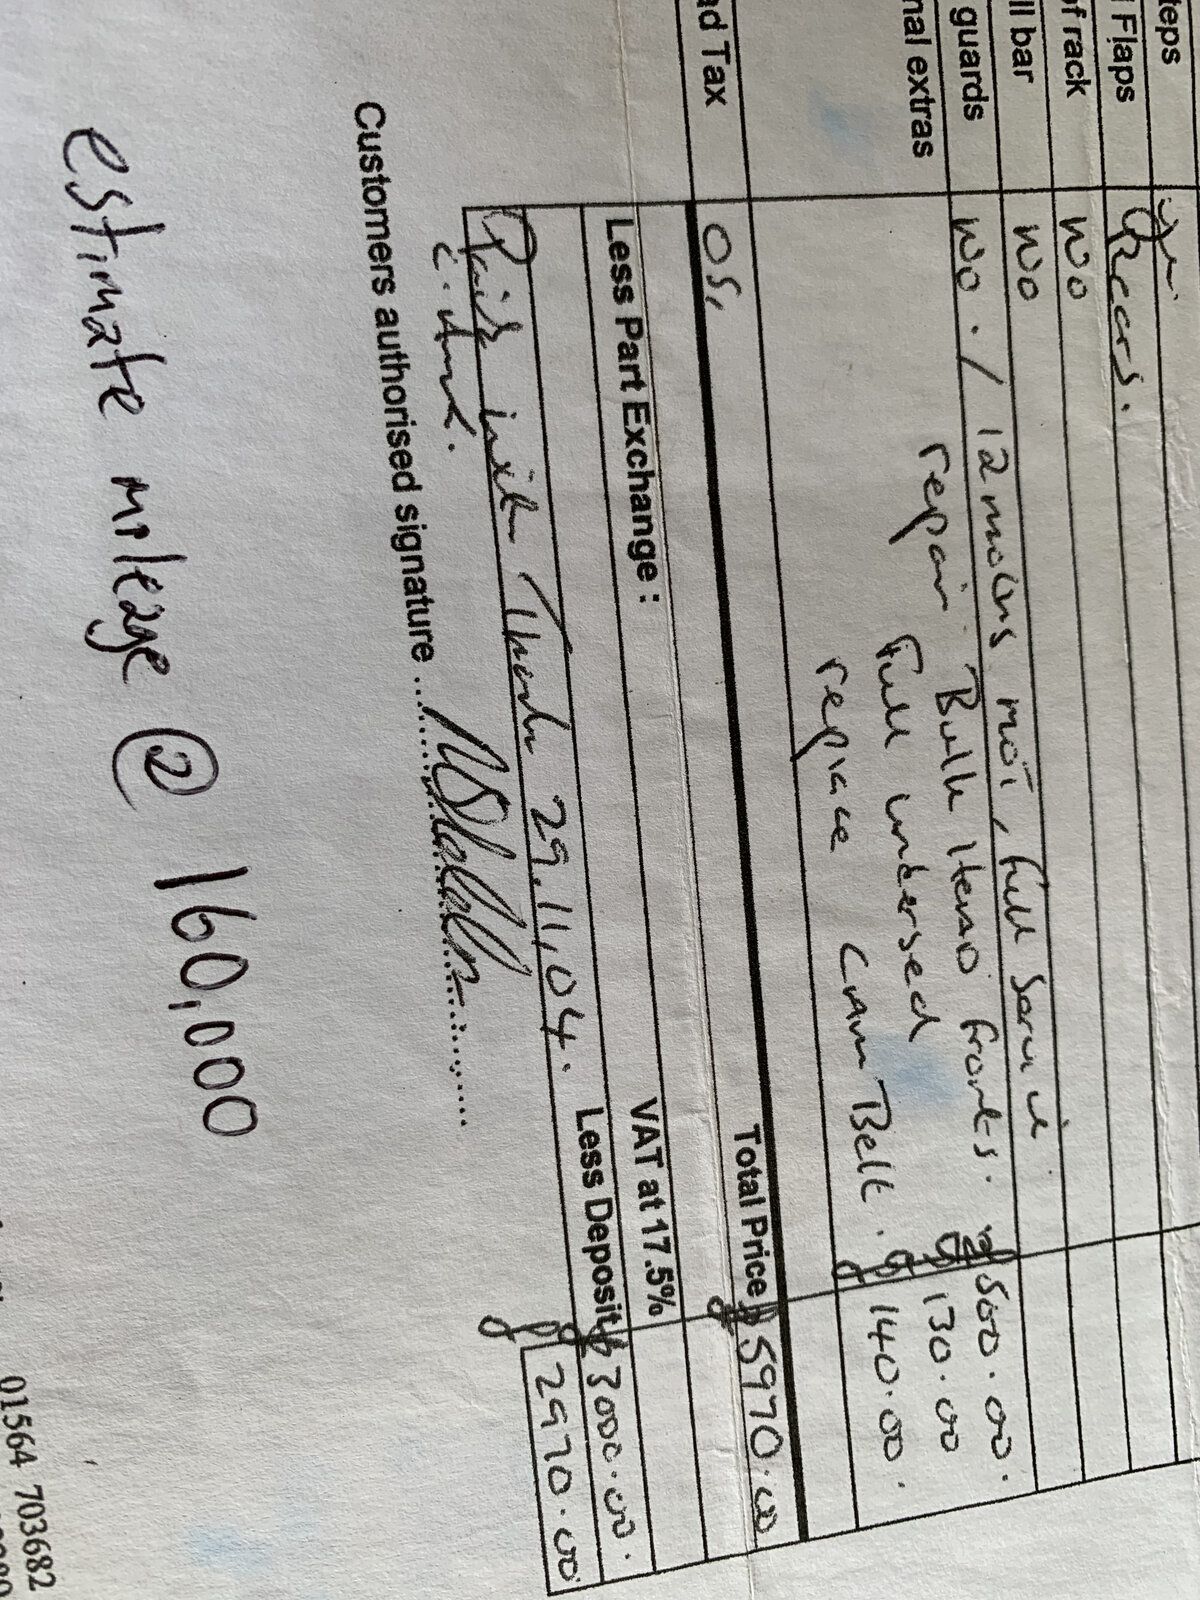 teps
Flaps Rears.
of rack No
ll bar No
guards No. / 12 months mot, full Service £500.00.
nal extras repair Bulk Head fronts. £130.00
Full undersed £140.00.
replace Cam Belt.
Total Price £5970.00
ad Tax
Less Part Exchange :
VAT at 17.5%
Less Deposit £3000.00.
Paid with Thanks 29.11.04. £2970.00
Customers authorised signature
estimate mileage @ 160,000
01564 703682